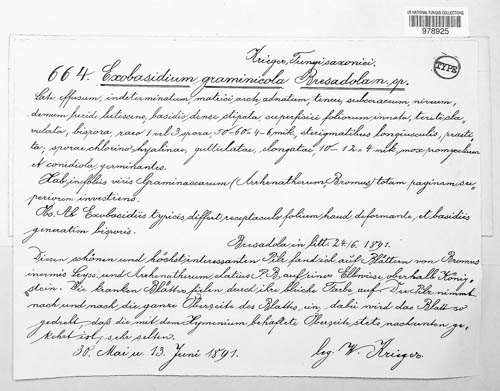 US NATIONAL FUNGUS COLLECTIONS
978925
Krieger, Fungi saxonici.
TYPE
664. Exobasidium graminicola Bresadola n. sp.
effusum, indeterminatum, matrici arcte adnatum, tenue, subceraceum, niveum,
demum lutescens, basidiis dense stipatis, superficiei foliorum innatis, tereti-cla-
vulatis, bisporis, raro 1 vel 3 sporis, 50-60 = 4-6 mik, sterigmatibus longiusculis,
sporae chlorino-hyalinae, guttulatae, elongatae, 10-12 = 4 mik, mox
et conidiola germinantes.
Hab. in foliis vivis Graminacearum (Arrhenatherum, Bromus) totam paginam su-
periorem investiens.
Obs. Ab Exobasidiis typicis differt receptaculo folium haud deformante, et basidiis
generatim bisporis.
Bresadola in litt. 24/6. 1891.
Diesen schönen und höchst interessanten Pilz fand ich auf Blättern von Bromus
inermis Leyss und Arrhenatherum elatius P. B. auf einer Elbwiese oberhalb König-
stein. Die kranken Blätter fielen durch ihre bleiche Farbe auf. Der Pilz nimmt
nach und nach die ganze Oberseite des Blatts ein, dabei wird das Blatt so
gedreht, daß die mit dem Hymenium behaftete Oberseite stets nach unten ge-
kehrt ist; sehr selten.
30. Mai u. 13. Juni 1891.
leg. W. Krieger